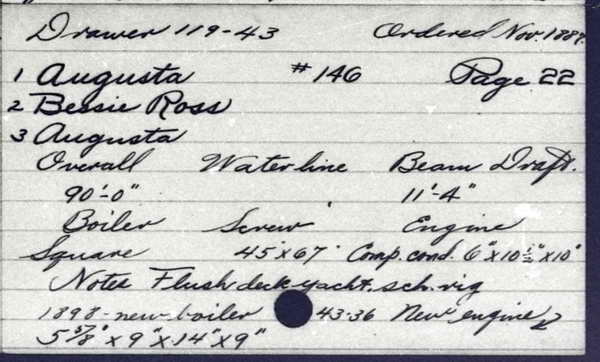 Drawer 119-43 Ordered Nov. 1887
1 Augusta #146 Page 22
2 Bessie Ross
3 Augusta
Overall Waterline Beam Draft.
90'-0" 11'-4"
Boiler Screw Engine
Square 45"x67" Comp. cond. 6"x10½"x10"
Notes Flush deck yacht. sch. rig
1898-new boiler 43-36 New engine
5⅞"x9"x14"x9"